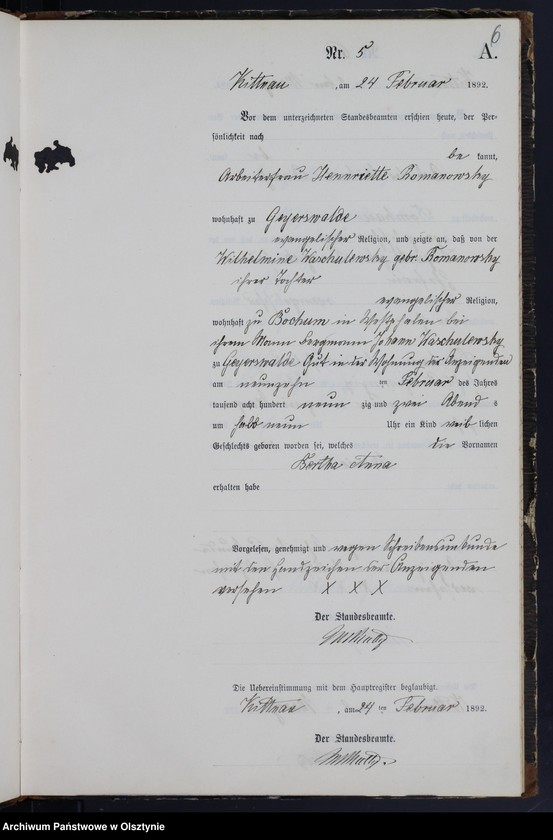 6
Nr. 5 A.
Kittnau, am 24 Februar 1892.
Vor dem unterzeichneten Standesbeamten erschien heute, der Per-
sönlichkeit nach
be kannt,
Arbeiterfrau Hennriette Romanowsky
wohnhaft zu Geyerswalde
evangelischer Religion, und zeigte an, daß von der
Wilhelmine Waschulewsky gebr. Romanowsky
ihrer Tochter
evangelischer Religion,
wohnhaft zu Bochum in Westphalen bei
ihrem Mann Bergmann Johann Waschulewsky
zu Geyerswalde Gut in der Wohnung der Anzeigenden
am neunzehn ten Februar des Jahres
tausend acht hundert neun zig und zwei Abend s
um halb neun Uhr ein Kind weib lichen
Geschlechts geboren worden sei, welches die Vornamen
Bertha Anna
erhalten habe
Vorgelesen, genehmigt und wegen Schreibensunkunde
mit den Handzeichen der Anzeigenden
versehen X X X
Der Standesbeamte.
Die Uebereinstimmung mit dem Hauptregister beglaubigt.
Kittnau, am 24 ten Februar 1892.
Der Standesbeamte.
Archiwum Państwowe w Olsztynie